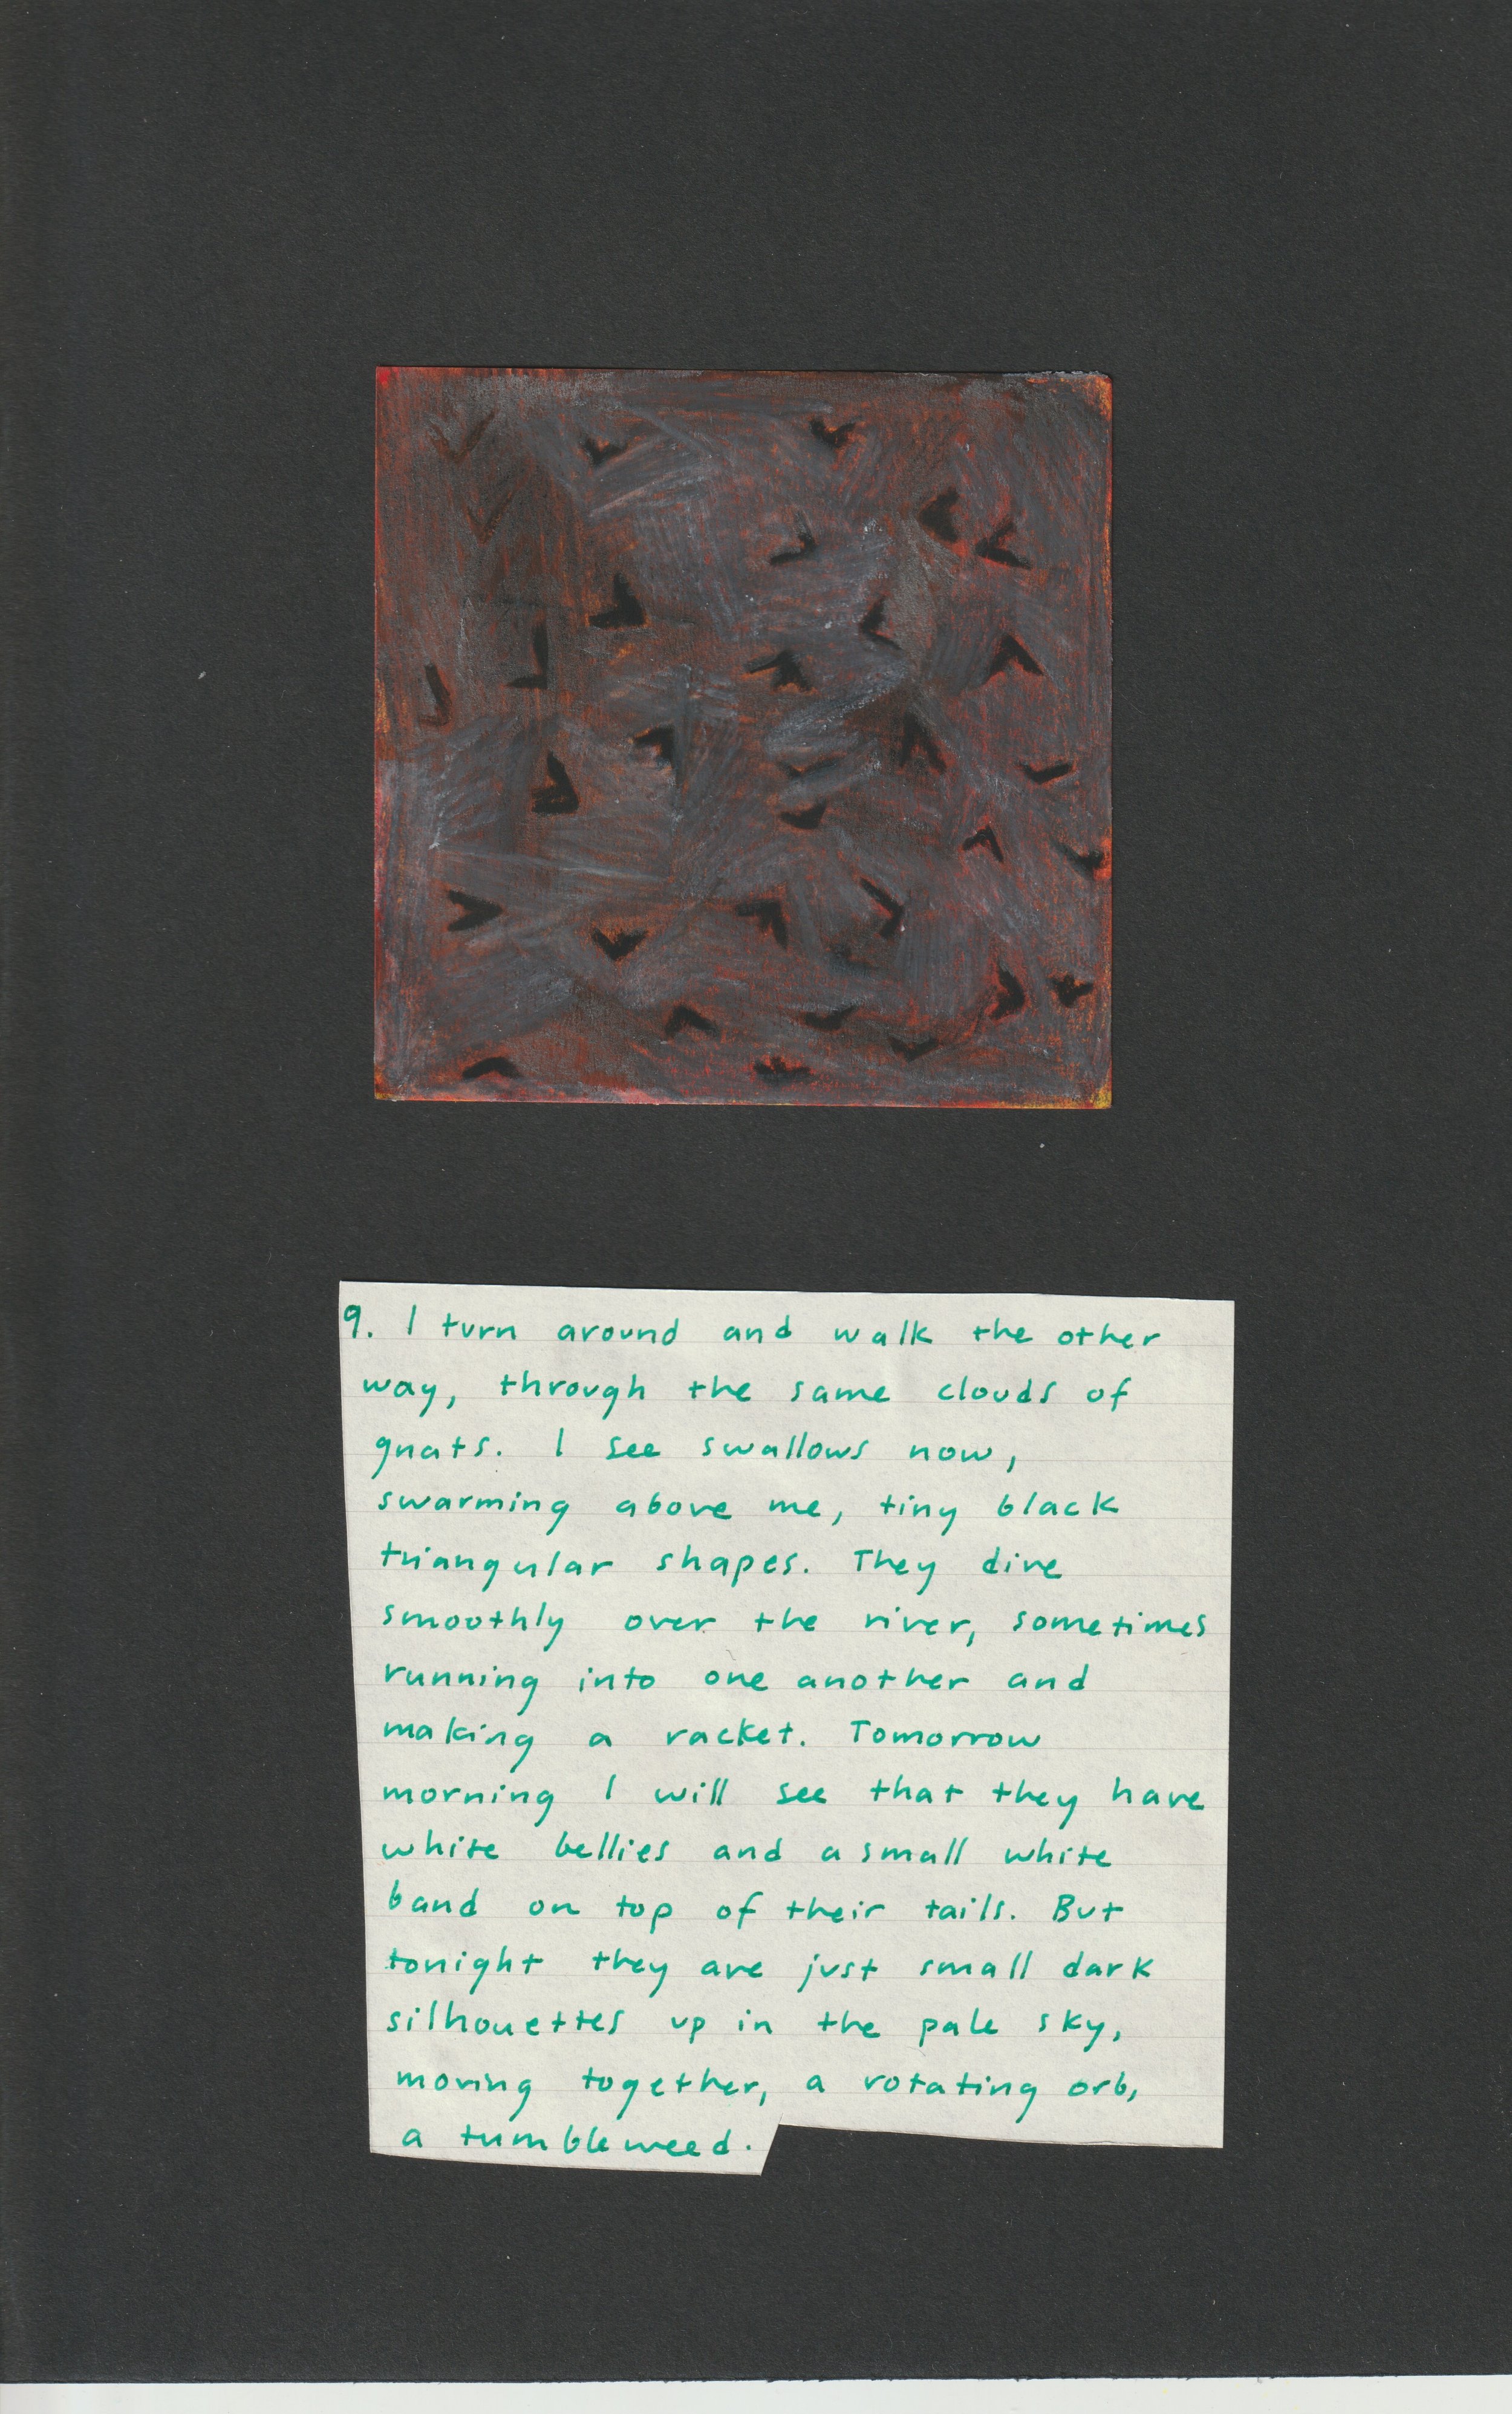 9. I turn around and walk the other
way, through the same clouds of
gnats. I see swallows now,
swarming above me, tiny black
triangular shapes. They dive
smoothly over the river, sometimes
running into one another and
making a racket. Tomorrow
morning I will see that they have
white bellies and a small white
band on top of their tails. But
tonight they are just small dark
silhouettes up in the pale sky,
moving together, a rotating orb,
a tumbleweed.